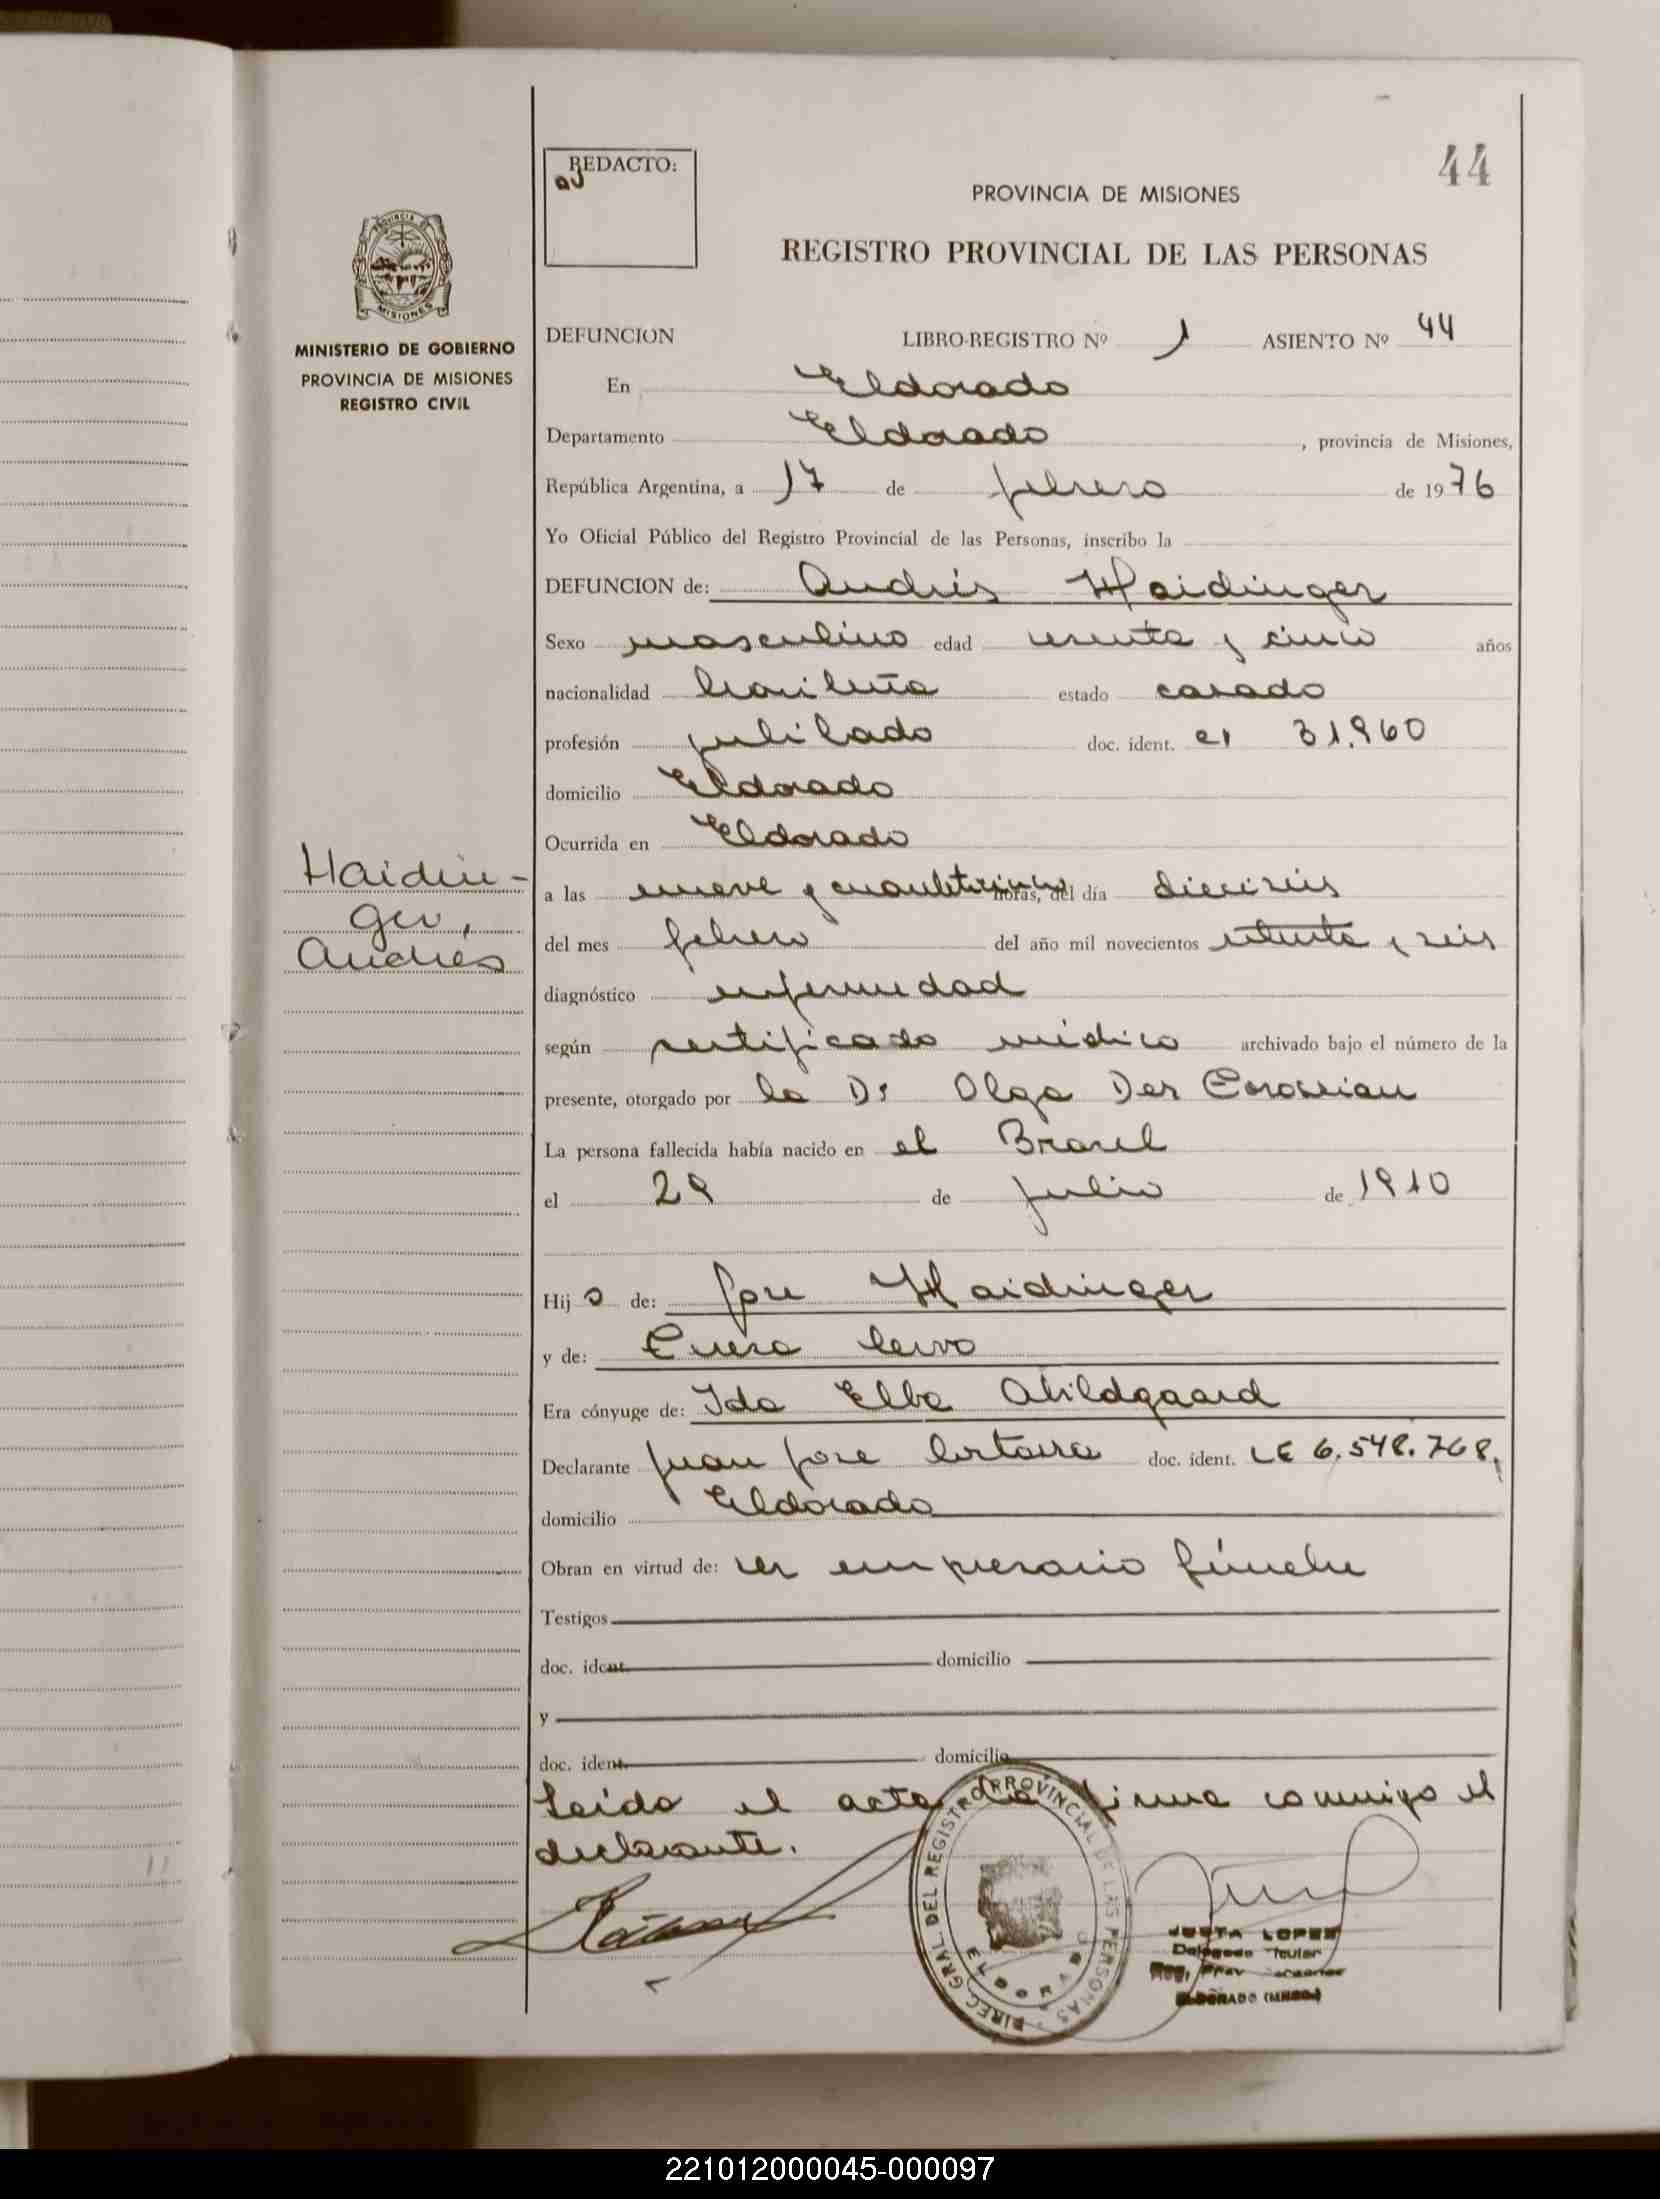 REDACTO:
44
PROVINCIA DE MISIONES
REGISTRO PROVINCIAL DE LAS PERSONAS
PROVINCIA DE
MISIONES
MINISTERIO DE GOBIERNO
PROVINCIA DE MISIONES
REGISTRO CIVIL
DEFUNCION LIBRO-REGISTRO Nº 1 ASIENTO Nº 44
En Eldorado
Departamento Eldorado, provincia de Misiones,
República Argentina, a 17 de febrero de 1976
Yo Oficial Público del Registro Provincial de las Personas, inscribo la
DEFUNCION de: Andrés Haidinger
Sexo masculino edad sesenta y cinco años
nacionalidad brasileña estado casado
profesión jubilado doc. ident. CI 31.960
domicilio Eldorado
Ocurrida en Eldorado
Haidin-
ger,
Andrés
a las nueve y horas, del día dieciséis
del mes febrero del año mil novecientos setenta y seis
diagnóstico enfermedad
según certificado médico archivado bajo el número de la
presente, otorgado por la Dr Olga Der
La persona fallecida había nacido en el Brasil
el 29 de julio de 1910
Hijo de: José Haidinger
y de:
Era cónyuge de: Ida Elba Abildgaard
Declarante Juan José doc. ident. LE 6.548.768,
domicilio Eldorado
Obran en virtud de: ser empresario fúnebre
Testigos
doc. ident. domicilio
y
doc. ident. domicilio
Leída el acta la firma conmigo el
declarante.
DIREC. GRAL DEL REGISTRO PROVINCIAL DE LAS PERSONAS
ELDORADO
JUSTA LOPEZ
Delegado Titular
ELDORADO (MNES.)
221012000045-000097